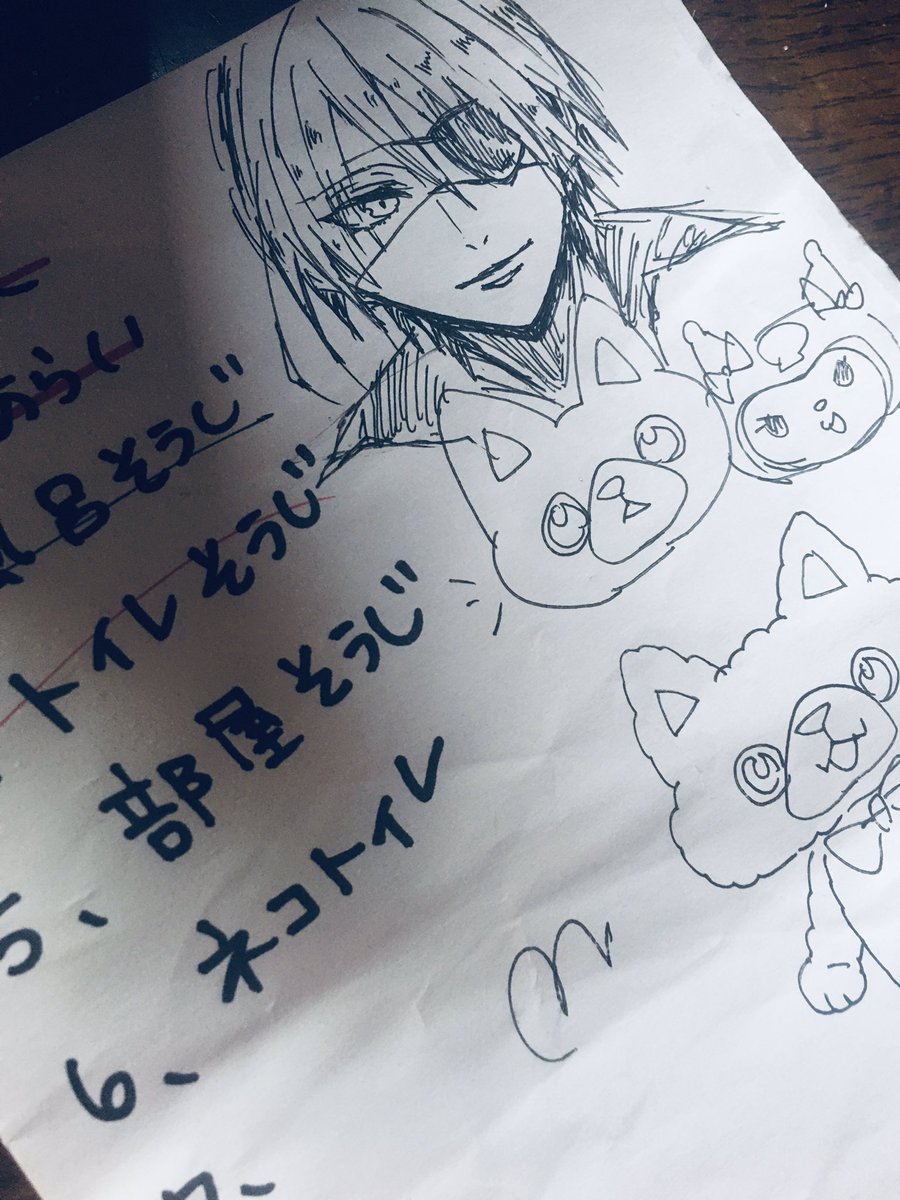 あらい
呂そうじ
トイレそうじ
5、部屋そうじ
6、ネコトイレ
7、